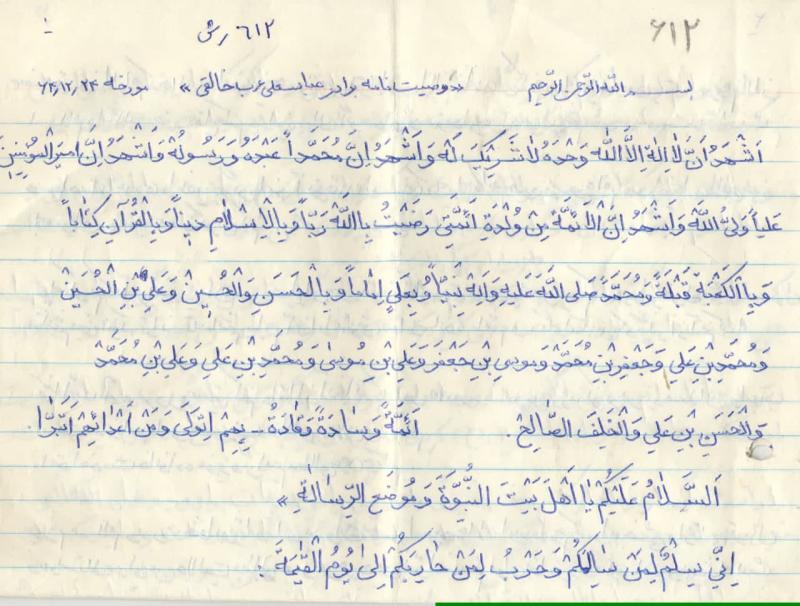 ۶۱۲
۶۱۲ رش
بسم الله الرحمن الرحیم «وصیت نامه برادر عباسعلی عرب خالقی» مورخه ۶۴,۱۲,۲۴
اَشْهَدُ اَنَّ لاٰ اِلهَ اِلَّا اللّٰه وَحْدَهُ لاٰ شَرِیٖکَ لَهْ وَ اَشْهَدُ اِنَّ مُحَمَّداً عَبْدَهُ وَ رَسُولُهْ وَ اَشْهَدُ اِنَّ امیرَالمُومِنینَ
عَلیاً وَلیُّ اللَّهْ وَ اَشْهَدُ اِنَّ الْاَئِمَّةَ مِنْ وُلْدَةِ اَئِمَّتیٖ رَضیٖتُ بِاللَّهِ رَبّاً وَ بِالْاِسْلاٰمِ دیٖناً وَ بِالْقُرْآنِ کِتٰاباً
وَ بِا الْکَعْبَةِ قَبْلَةً وَ مُحَمَّدً صَلَی اللّهَ عَلَیهِ وَ الِهِ نَبیّاً وَ بِعَلیٍ اِمٰاماً وَ بِا لْحَسَنِ وَالْحُسِیْنْ وَ عَلیِ بْنِ الْحُسَیْنْ
وَ مُحَمَّدِ بْنِ عَلیٖ وَ جَعْفَرِ بْنِ مُحَمَّدْ وَ مُوسیَ بْنِ جَعْفَرَ وَ عَلیِ بْنِ مُوسیٰ وَ مُحَمَّدِ بْنِ عَلیٖ وَ عَلیِ بْنِ مُحَمَّدْ
وَ الْحَسَنِ بْنِ عَلیٖ وَ الْخَلَفَ الصّٰالِحْ. اَئِمَّةً وَ سٰادَةً وَ قٰادَةً ــ بِهِمْ اِتَوَلیٰ وَ مِنْ اَعْدٰائِهِمْ اَتَبَرّٰا.
اَلسَّلاٰمُ عَلَیْکُمْ یٰا اَهْلَ بَیْتَ النُّبُوَّةَ وَ مُوضَعَ الرِّسٰالَةِ »
اِنّیٖ سِلْمٌ لِمَنْ سٰالَمَکُمْ وَ حَرْبُ لِمَنْ حٰارَبَکُمْ اِلیٰ یُومُ الْقِیٰمَةَ :